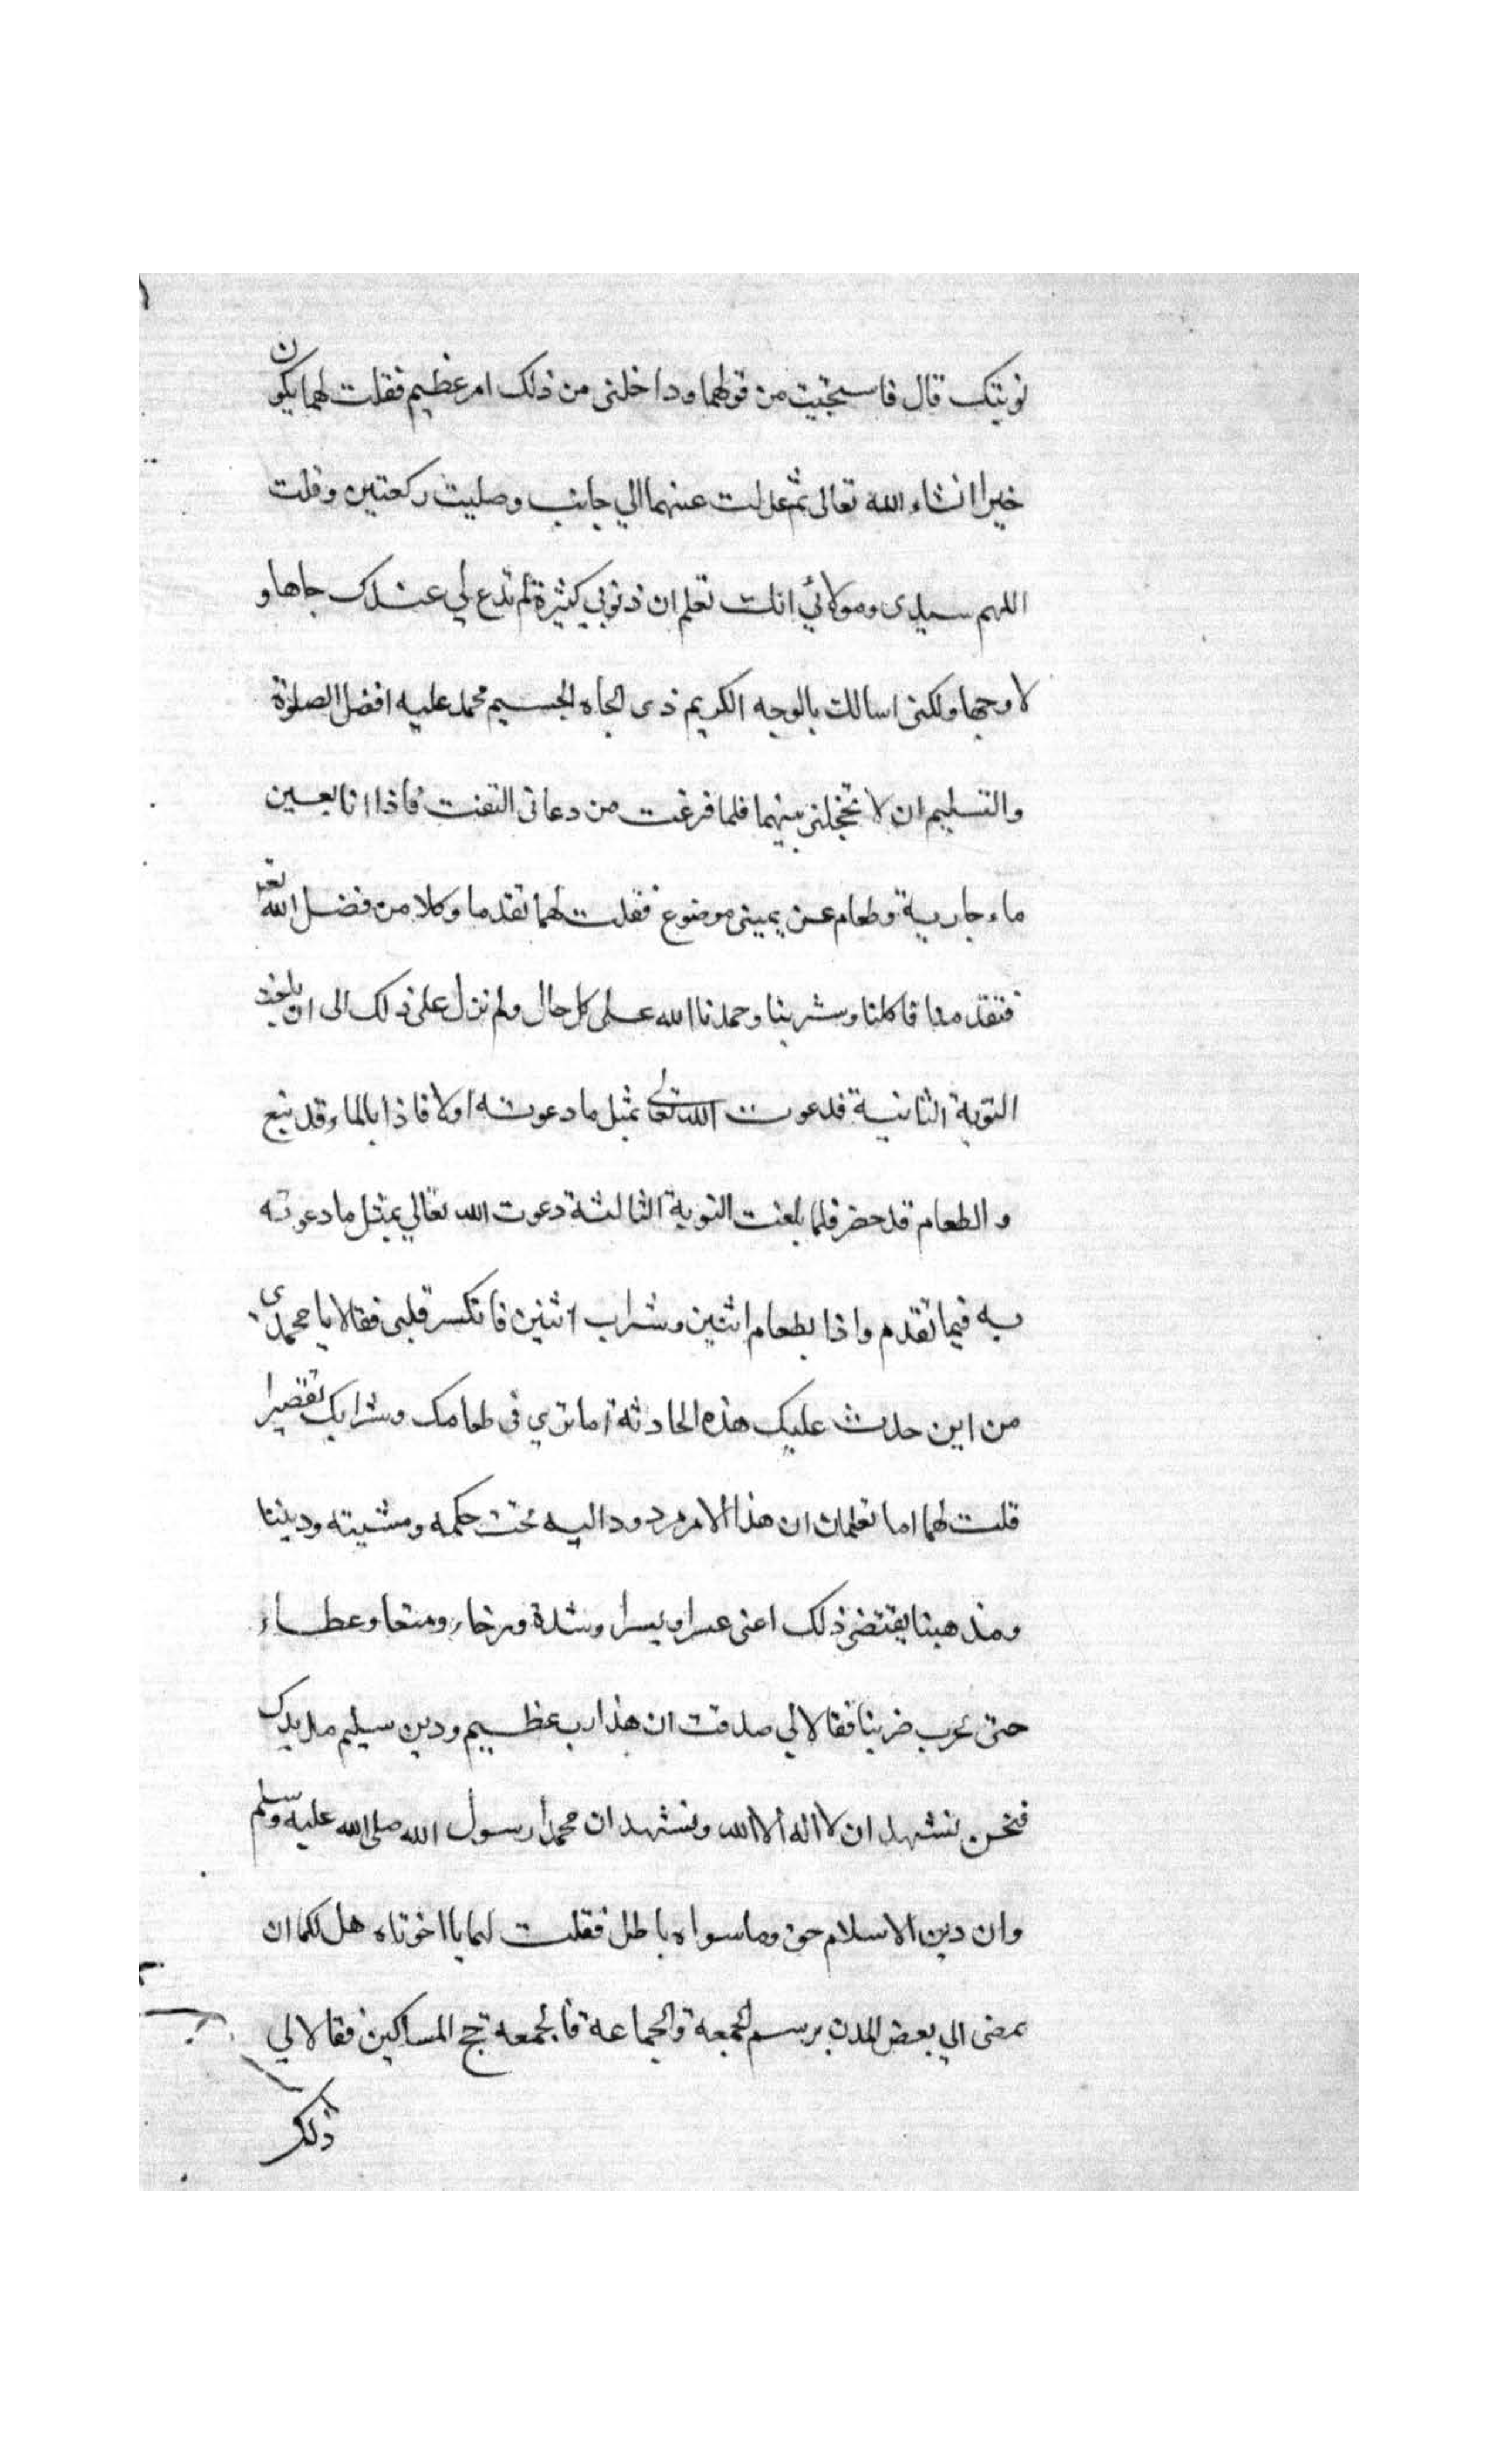 نوبتك قال فاستحييت من قولهما وداخلنى من ذلك امر عظيم فقلت لهما يكون
خيرا انشاء الله تعالى ثم عدلت عنهما الي جانب وصليت ركعتين وقلت
اللهم سيدى ومولائي انك تعلم ان ذنوبي كثيرة لم تدع لي عندك جاها و
لا وجها ولكنى اسالك بالوجه الكريم ذى الجاه الجسيم محمد عليه افضل الصلوة
والتسليم ان لا تخجلنى بينهما فلما فرغت من دعائى التفت فاذا انا بعين
ماء جارية وطعام عن يمينى موضوع فقلت لهما تقدما وكلا من فضل الله تعم
فتقدمنا فاكلنا وشربنا وحمدنا الله على كل حال ولم نزل على ذلك الى ان بلغت
النوبة الثانية فدعوت الله تعالى بمثل ما دعوته اولا فاذا بالماء قد نبع
والطعام قد حضر فلما بلغت النوبة الثالثة دعوت الله تعالي بمثل ما دعوته
به فيما تقدم واذا بطعام اثنين وشراب اثنين فانكسر قلبى فقالا يا محمدى
من اين حدث عليك هذه الحادثة اما تري فى طعامك وشرابك تقصيرا
قلت لهما اما تعلمان ان هذا الامر مردود اليه تحت حكمه ومشيته وديننا
ومذهبنا يقتضى ذلك اعنى عسرا ويسرا وشدة ورخاء ومنعا وعطاء
حتى ضربنا فقالا لي صدقت ان هذا رب عظيم ودين سليم مد يدك
فنحن نشهد ان لا اله الا الله ونشهد ان محمدا رسول الله صلى الله عليه وسلم
وان دين الاسلام حق وما سواه باطل فقلت لهما يا اخوتاه هل لكما ان
نمضى الي بعض المدن برسم الجمعة والجماعة فالجمعه حج المساكين فقالا لي
ذلك